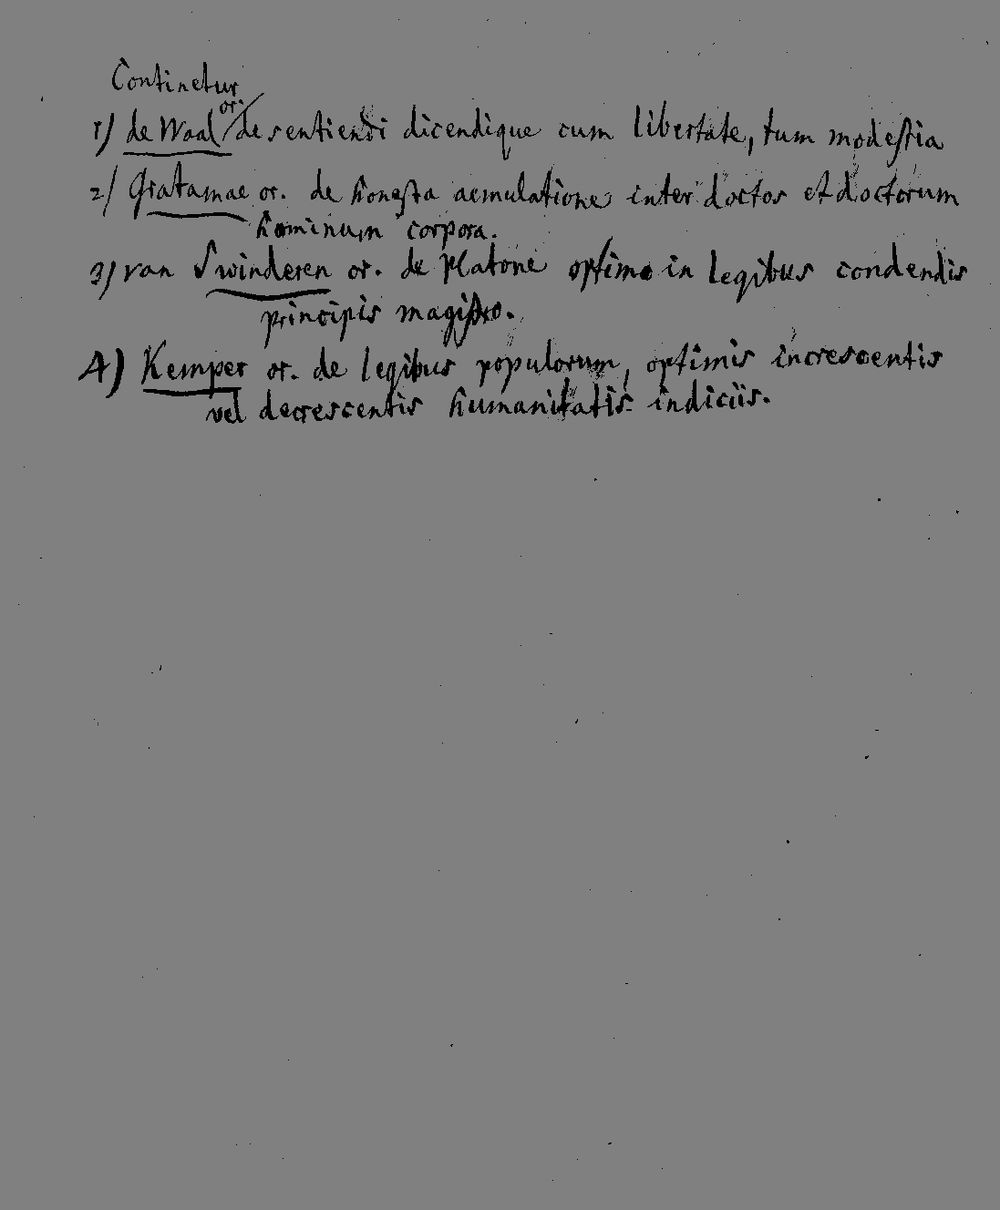 Continetur
1) de Waal or. de sentiendi dicendique cum libertate, tum modestia
2) Gratamae or. de honesta aemulatione inter doctos et doctorum
hominum corpora.
3) van Swinderen or. de Platone optimo in legibus condendis
principis magistro.
4) Kemper or. de legibus populorum, optimis increscentis
vel decrescentis humanitatis indiciis.